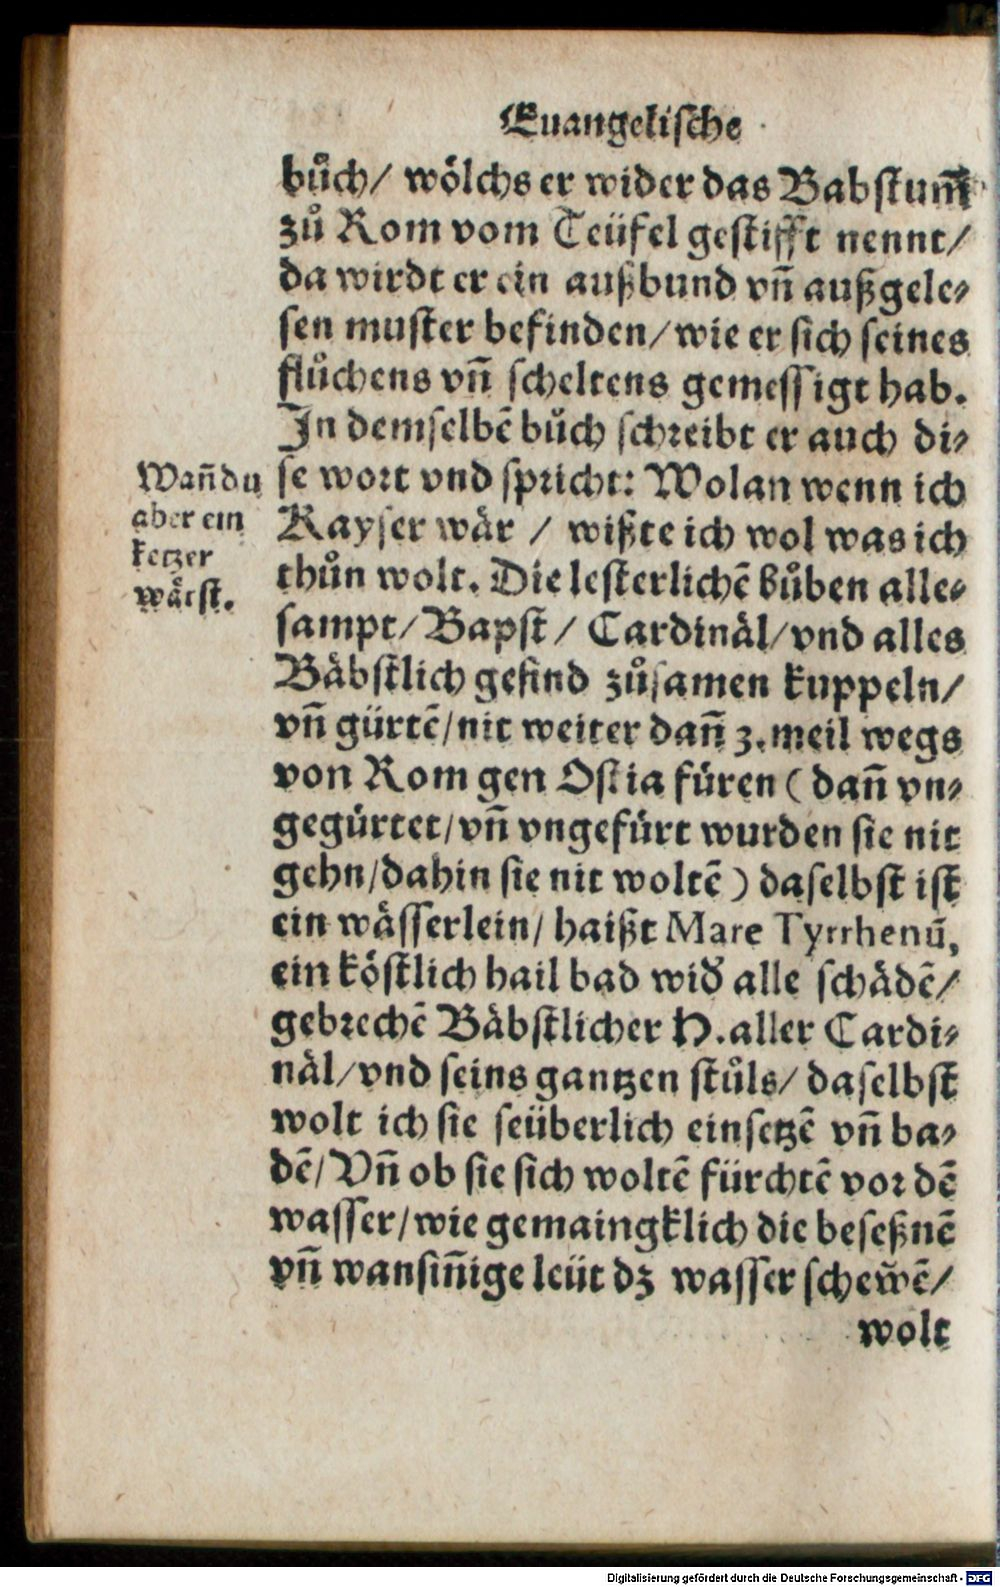 Euangelische
bůch/ wölchs er wider das Babstum̃
zů Rom vom Teüfel gestifft nennt/
da wirdt er ein außbund vñ außgele-
sen muster befinden/ wie er sich seines
flůchens vñ scheltens gemessigt hab.
In demselbẽ bůch schreibt er auch di-
se wort vnd spricht: Wolan wenn ich
Kayser wär / wißte ich wol was ich
thůn wolt. Die lesterlichẽ bůben alle-
sampt/ Bapst/ Cardinäl/ vnd alles
Bäbstlich gesind zůsamen kuppeln/
vñ gürtẽ/ nit weiter dañ 3. meil wegs
von Rom gen Ostia füren (dañ vn-
gegürtet/ vñ vngefürt wurden sie nit
gehn/ dahin sie nit woltẽ) daselbst ist
ein wässerlein/ haißt Mare Tyrrhenũ,
ein köstlich hail bad wid̃ alle schädẽ/
gebrechẽ Bäbstlicher H. aller Cardi-
näl/ vnd seins gantzen stůls/ daselbst
wolt ich sie seüberlich einsetzẽ vñ ba-
dẽ/ Vñ ob sie sich woltẽ fürchtẽ vor dẽ
wasser/ wie gemaingklich die beseßnẽ
vñ wansiñige leüt dz wasser schew̃ẽ/
wolt
Wañ du
aber ein
ketzer
wärst.
Digitalisierung gefördert durch die Deutsche Forschungsgemeinschaft - DFG